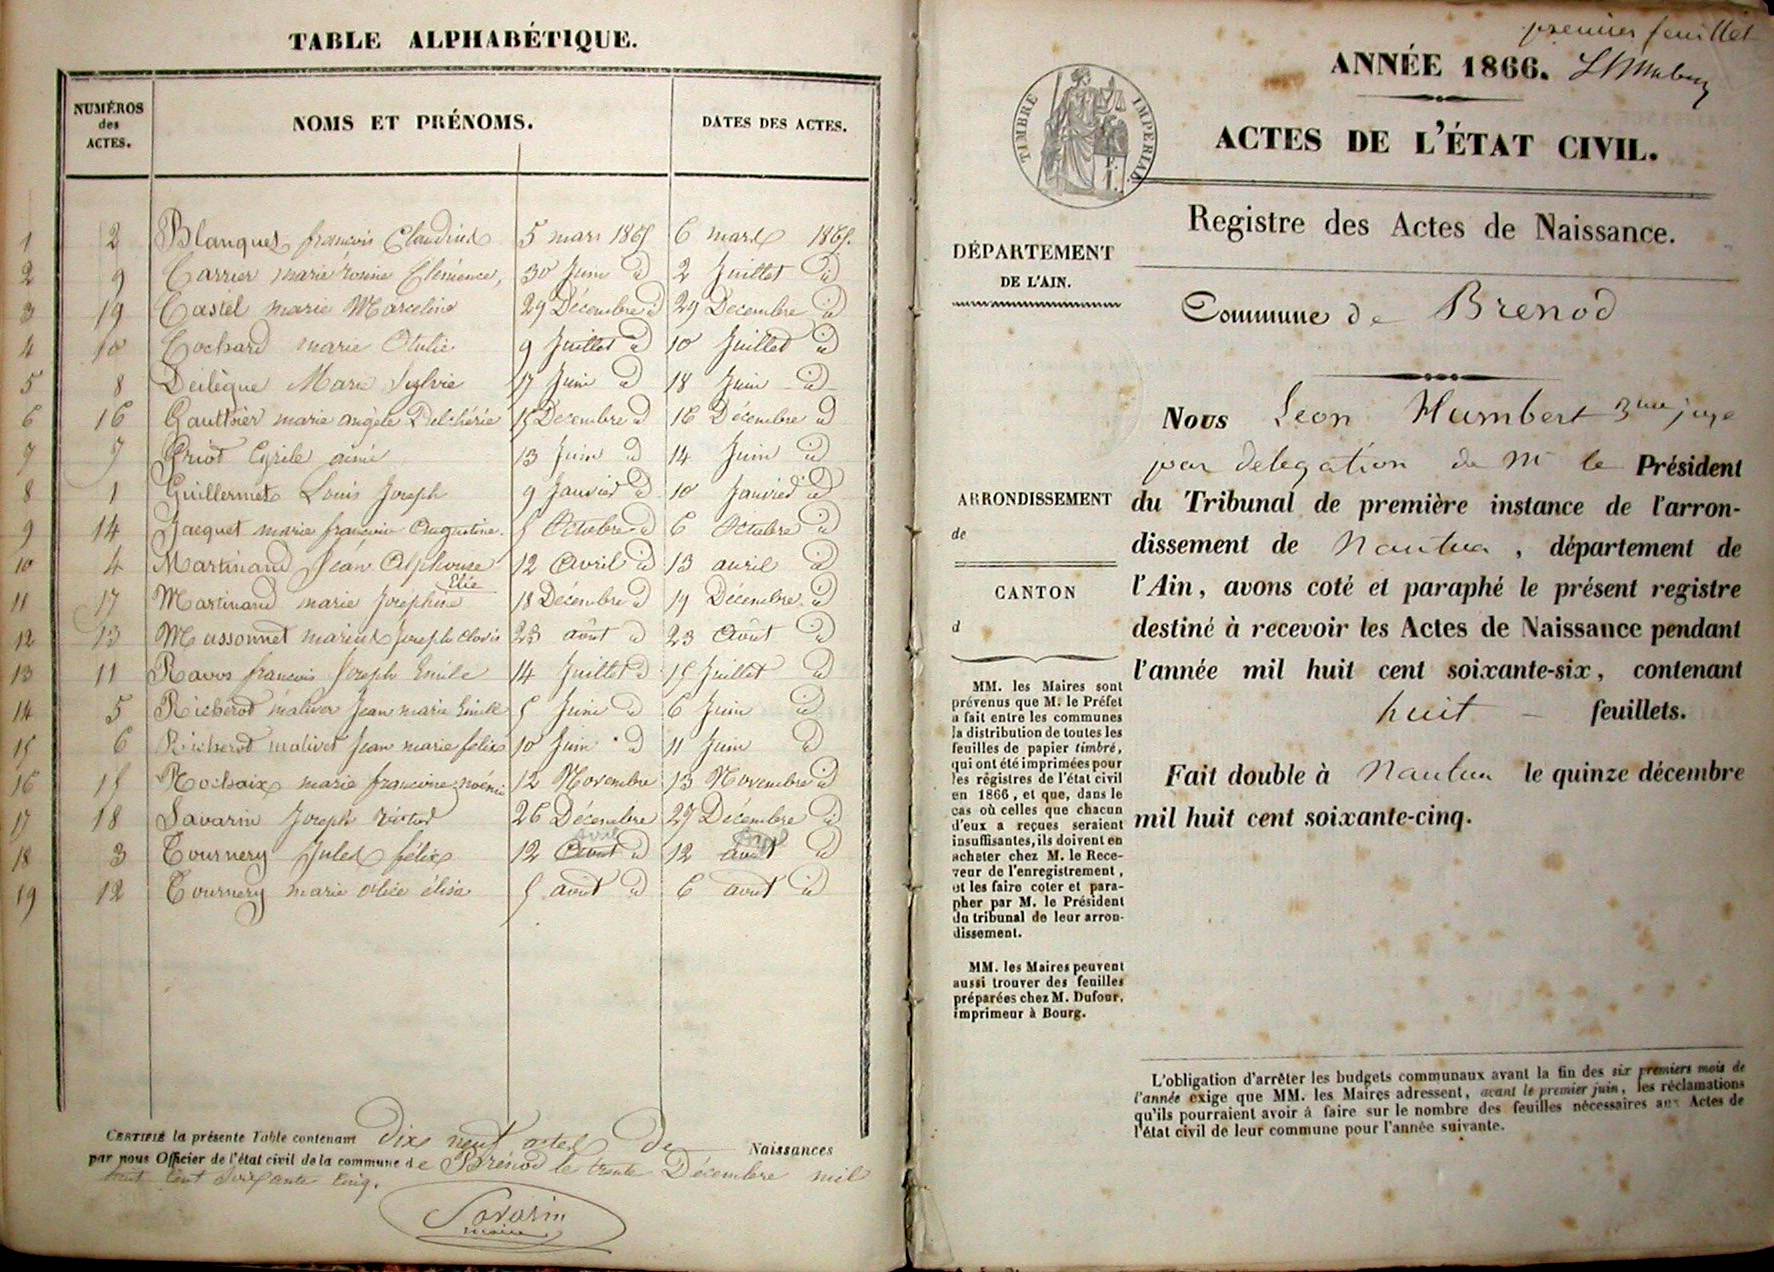 TABLE ALPHABÉTIQUE.
NUMÉROS des ACTES.
NOMS ET PRÉNOMS.
DATES DES ACTES.
1 2 Blanquet françois Claudius 5 mars 1865 6 mars 1865.
2 9 Carrier marie Clémence, 30 Juin id 2 Juillet id
3 19 Castel marie Marceline 29 Décembre id 29 Décembre id
4 10 Cochard marie Otulie 9 Juillet id 10 Juillet id
5 8 Delègue Marie Sylvie 17 Juin id 18 Juin id
6 16 Gauthier marie angèle 15 Décembre id 16 Décembre id
7 7 Griot Cyrile aimé 13 Juin id 14 Juin id
8 1 Guillermet Louis Joseph 9 Janvier id 10 Janvier id
9 14 Jacquet marie françoise Augustine. 5 Octobre id 6 Octobre id
10 4 Martinand Jéan Alphonse 12 Avril id 13 avril id
Elie
11 17 Martinand marie Josephine 18 Décembre id 19 Décembre id
12 13 Massonnet marius Joseph Clovis 23 août id 23 Août id
13 11 Ravos françois Joseph Emile 14 Juillet id 15 Juillet id
14 5 Richerot Jean marie Emile 5 Juin id 6 Juin id
15 6 Richerot malivet Jean marie felix 10 Juin id 11 Juin id
16 15 Rochaix marie francine noémie 12 Novembre 13 Novembre id
17 18 Savarin Joseph Victor 26 Décembre 27 Décembre id
avril avril
18 3 Tournery Jules félix 12 août id 12 août id
19 12 Tournery marie élisa 5 août id 6 août id
CERTIFIÉ la présente Table contenant Dix neuf actes De Naissances
par nous Officier de l'état civil de la commune de Brénod le trente Décembre mil
huit cent soixante cinq.
Savarin
maire
premier feuillet
ANNÉE 1866.
TIMBRE IMPERIAL
ACTES DE L'ÉTAT CIVIL.
Registre des Actes de Naissance.
DÉPARTEMENT
DE L'AIN.
Commune de Brenod
ARRONDISSEMENT
de
CANTON
d
MM. les Maires sont
prévenus que M. le Préfet
a fait entre les communes
la distribution de toutes les
feuilles de papier timbré,
qui ont été imprimées pour
les régistres de l'état civil
en 1866, et que, dans le
cas où celles que chacun
d'eux a reçues seraient
insuffisantes, ils doivent en
acheter chez M. le Rece-
veur de l'enregistrement,
et les faire coter et para-
pher par M. le Président
du tribunal de leur arron-
dissement.
MM. les Maires peuvent
aussi trouver des feuilles
préparées chez M. Dufour,
imprimeur à Bourg.
Nous Leon Humbert juge
par delegation de Mr le Président
du Tribunal de première instance de l'arron-
dissement de Nantua, département de
l'Ain, avons coté et paraphé le présent registre
destiné à recevoir les Actes de Naissance pendant
l'année mil huit cent soixante-six, contenant
huit feuillets.
Fait double à Nantua le quinze décembre
mil huit cent soixante-cinq.
L'obligation d'arrêter les budgets communaux avant la fin des six premiers mois de
l'année exige que MM. les Maires adressent, avant le premier juin, les réclamations
qu'ils pourraient avoir à faire sur le nombre des feuilles nécessaires aux Actes de
l'état civil de leur commune pour l'année suivante.